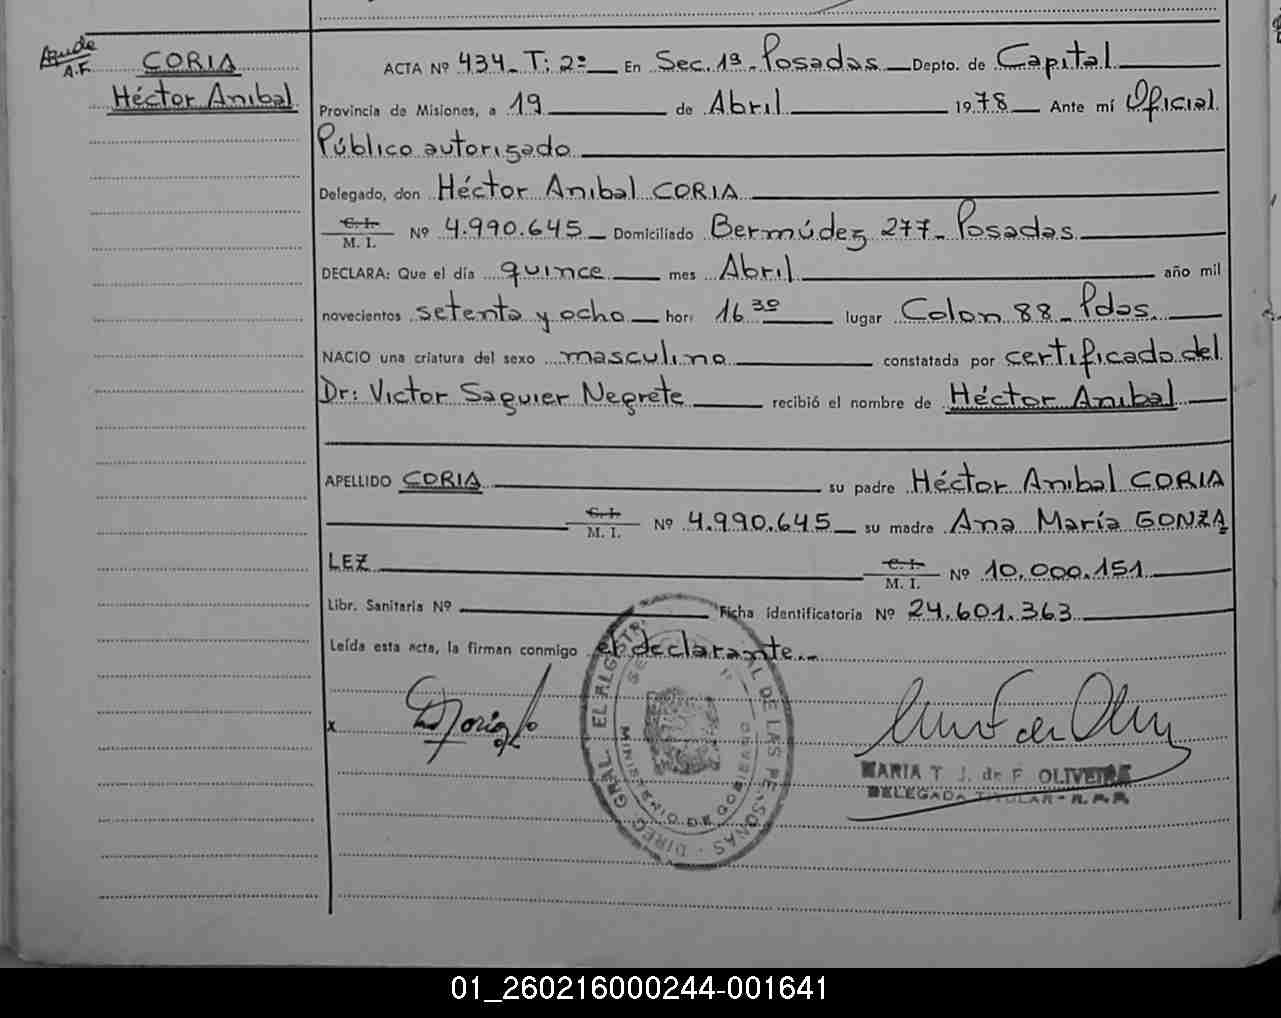 A.F.
CORIA
Héctor Anibal
ACTA Nº 434_ T: 2º En Sec. 1ª Posadas Depto. de Capital
Provincia de Misiones, a 19 de Abril 1978 Ante mí Oficial
Público autorizado
Delegado, don Héctor Anibal CORIA
C. I.
M. I. Nº 4.990.645 Domiciliado Bermúdez 277_ Posadas
DECLARA: Que el día quince mes Abril año mil
novecientos setenta y ocho hor: 16 30 lugar Colon 88_ Pdas.
NACIO una criatura del sexo masculino constatada por certificado del
Dr: Victor Saguier Negrete recibió el nombre de Héctor Anibal
APELLIDO CORIA su padre Héctor Anibal CORIA
C. I.
M. I. Nº 4.990.645 su madre Ana María GONZA
LEZ C. I.
M. I. Nº 10.000.151
Libr. Sanitaria Nº Ficha identificatoria Nº 24.601.363
Leída esta acta, la firman conmigo el declarante._
x
DIREC. GRAL. DE LAS PERSONAS
MINISTERIO DE GOBIERNO
MARIA T. J. de F. OLIVEIRA
DELEGADA TITULAR - R.P.P.
01_260216000244-001641